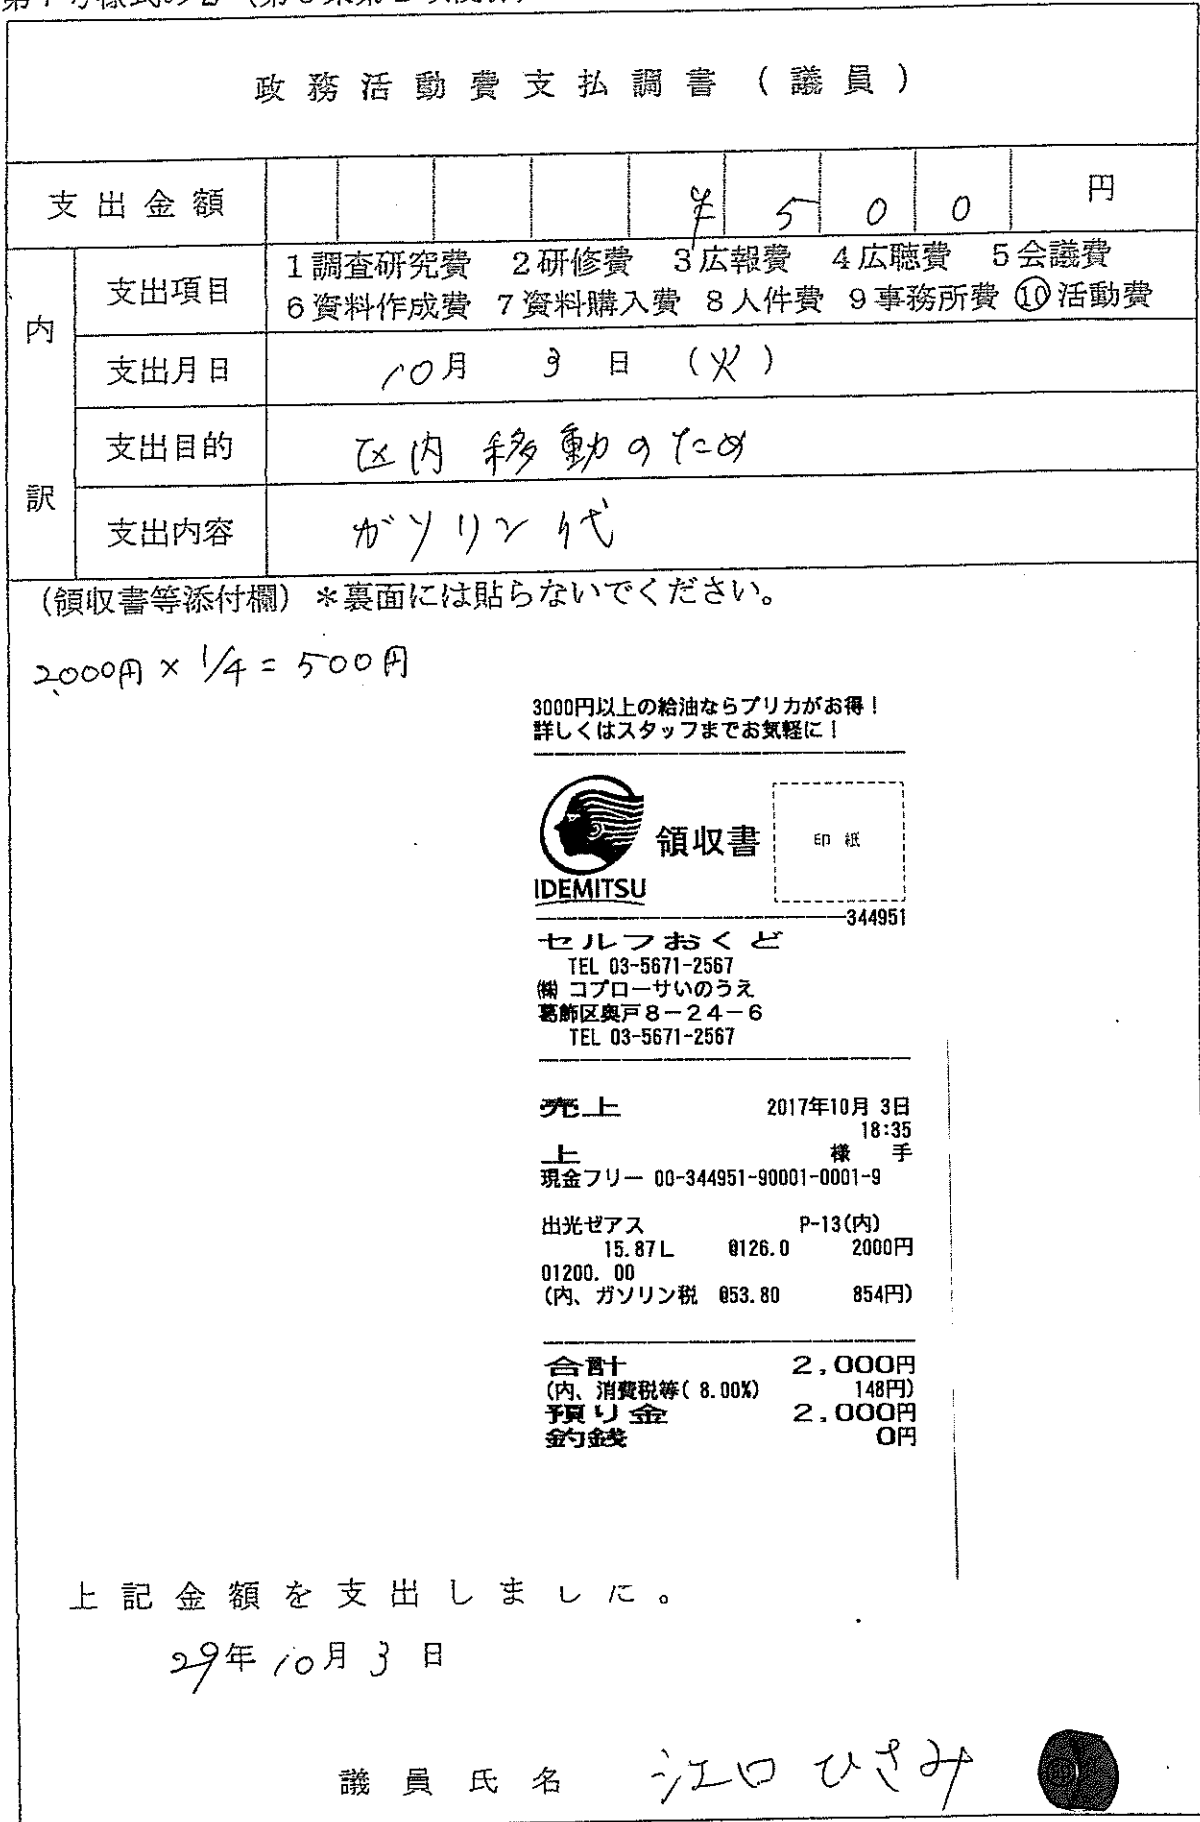 政務活動費支払調書(議員)
支出金額 ¥ 5 0 0 円
内訳
支出項目 1調査研究費 2研修費 3広報費 4広聴費 5会議費
6資料作成費 7資料購入費 8人件費 9事務所費 ⑩活動費
支出月日 10月 3日 (火)
支出目的 区内移動のため
支出内容 ガソリン代
(領収書等添付欄)*裏面には貼らないでください。
2000円 × 1/4 = 500円
3000円以上の給油ならプリカがお得!
詳しくはスタッフまでお気軽に!
領収書 印紙
IDEMITSU
344951
セルフおくど
TEL 03-5671-2567
㈱ コプローサいのうえ
葛飾区奥戸8-24-6
TEL 03-5671-2567
売上 2017年10月 3日
18:35
上 様 手
現金フリー 00-344951-90001-0001-9
出光ゼアス P-13(内)
15.87L @126.0 2000円
01200. 00
(内、ガソリン税 @53.80 854円)
合計 2,000円
(内、消費税等( 8.00%) 148円)
預り金 2,000円
釣銭 0円
上記金額を支出しました。
29年10月3日
議員氏名 江口ひさみ